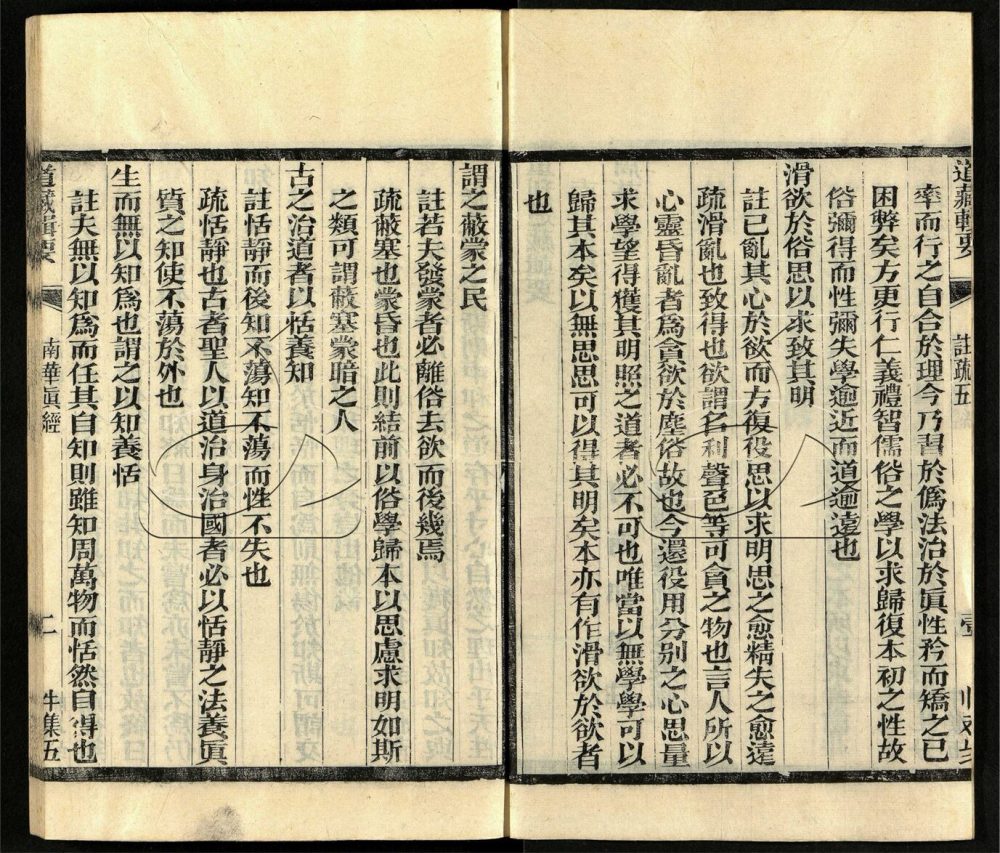 道藏輯要 註疏五
率而行之自合於理今乃習於僞法治於眞性矜而矯之已
困弊矣方更行仁義禮智儒俗之學以求歸復本初之性故
俗彌得而性彌失學逾近而道逾遠也
滑欲於俗思以求致其明
註已亂其心於欲而方復役思以求明思之愈精失之愈遠
疏滑亂也致得也欲謂名利聲色等可貪之物也言人所以
心靈昏亂者爲貪欲於塵俗故也今還役用分別之心思量
求學望得獲其明照之道者必不可也唯當以無學學可以
歸其本矣以無思思可以得其明矣本亦有作滑欲於欲者
也
謂之蔽蒙之民
註若夫發蒙者必離俗去欲而後幾焉
疏蔽塞也蒙昏也此則結前以俗學歸本以思慮求明如斯
之類可謂蔽塞蒙暗之人
古之治道者以恬養知
註恬靜而後知不蕩知不蕩而性不失也
疏恬靜也古者聖人以道治身治國者必以恬靜之法養眞
質之知使不蕩於外也
生而無以知爲也謂之以知養恬
註夫無以知爲而任其自知則雖知周萬物而恬然自得也
道藏輯要 南華眞經 二 牛集五